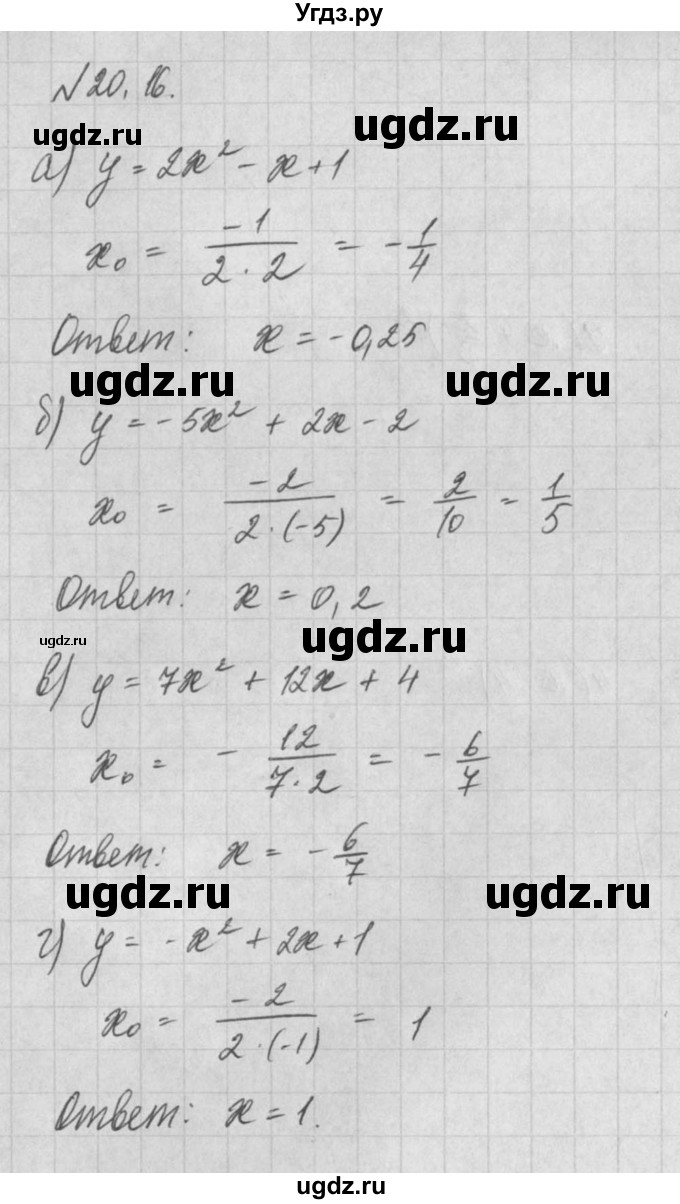 Угдз.ру
№20.16.
ugdz.ru
ugdz.ru
а) y = 2x² - x + 1
x₀ = -1/(2·2) = -1/4
Ответ: x = -0,25
ugdz.ru
ugdz.ru
б) y = -5x² + 2x - 2
x₀ = -2/(2·(-5)) = 2/10 = 1/5
Ответ: x = 0,2
ugdz.ru
ugdz.ru
в) y = 7x² + 12x + 4
x₀ = -12/(7·2) = -6/7
Ответ: x = -6/7
ugdz.ru
ugdz.ru
г) y = -x² + 2x + 1
x₀ = -2/(2·(-1)) = 1
Ответ: x = 1.
ugdz.ru